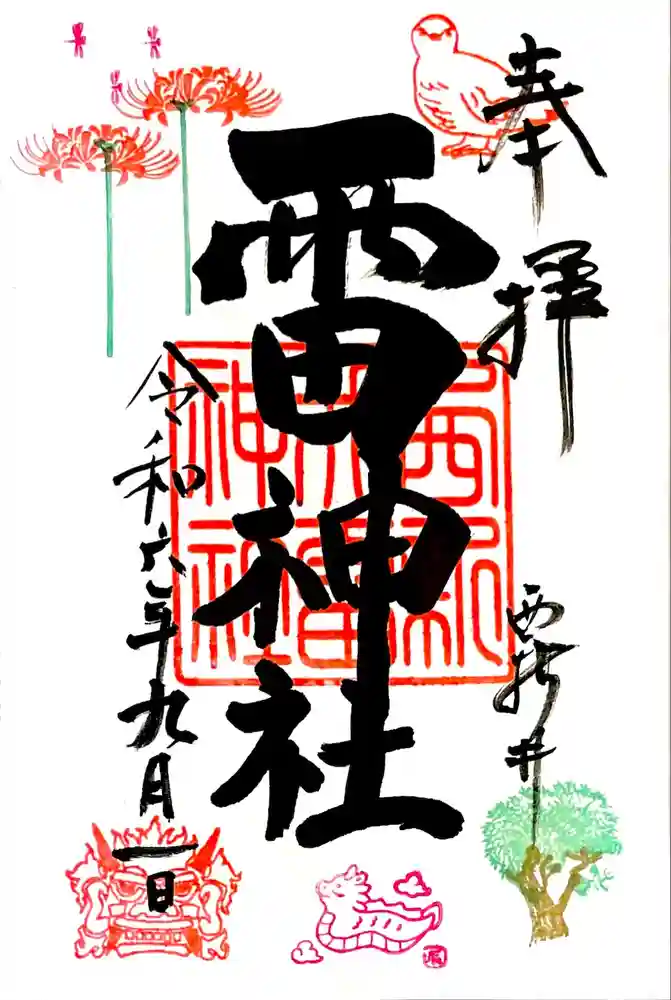 奉拝
西新井
雷神社
令和六年九月一日
西新
神社